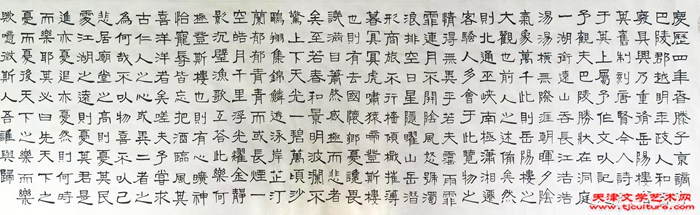 慶歷四年春滕子京謫守
巴陵郡越明年政通人和百
廢具興乃重修岳陽樓增
其舊制刻唐賢今人詩賦
于其上屬予作文以記之
予觀夫巴陵勝狀在洞庭
一湖銜遠山吞長江浩浩
湯湯橫無際涯朝暉夕陰
氣象萬千此則岳陽樓之
大觀也前人之述備矣然
則北通巫峽南極瀟湘遷
客騷人多會于此覽物之
情得無異乎若夫霪雨霏
霏連月不開陰風怒號濁
浪排空日星隱曜山岳潛
形商旅不行檣傾楫摧薄
暮冥冥虎嘯猿啼登斯樓
也則有去國懷鄉憂讒畏
譏滿目蕭然感極而悲者
矣至若春和景明波瀾不
驚上下天光一碧萬頃沙
鷗翔集錦鱗游泳岸芷汀
蘭郁郁青青而或長煙一
空皓月千里浮光耀金靜
影沉璧漁歌互答此樂何
極登斯樓也則有心曠神
怡寵辱皆忘把酒臨風其
喜洋洋者矣嗟夫予嘗求
古仁人之心或異二者之
為何哉不以物喜不以己
悲居廟堂之高則憂其民
處江湖之遠則憂其君是
進亦憂退亦憂然則何時
而樂耶其必曰先天下之
憂而憂後天下之樂而樂
歟噫微斯人吾誰與歸
天津文学艺术网
www.tjculture.com